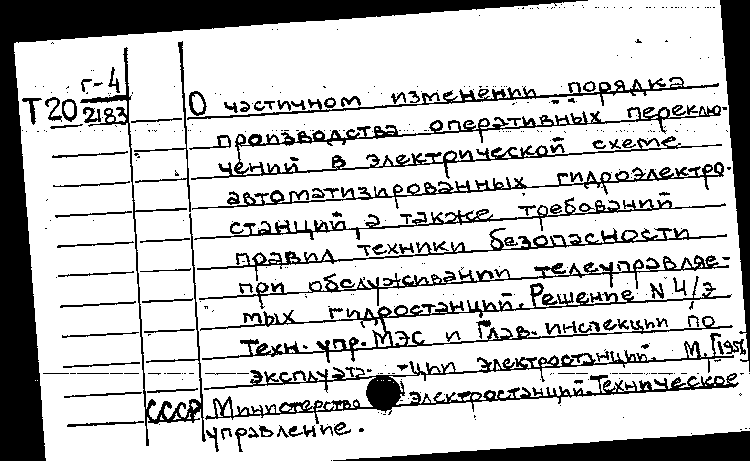 Т20 г-4/2183
О частичном изменении порядка
производства оперативных переклю-
чений в электрической схеме
автоматизированных гидроэлектро-
станций, а также требований
правил техники безопасности
при обслуживании телеуправляе-
мых гидростанций. Решение N 4/э
Техн. упр. МЭС и Глав. инспекции по
эксплуата- -ции электростанций. М. [195
СССР Министерство электростанций. Техническое
управление.